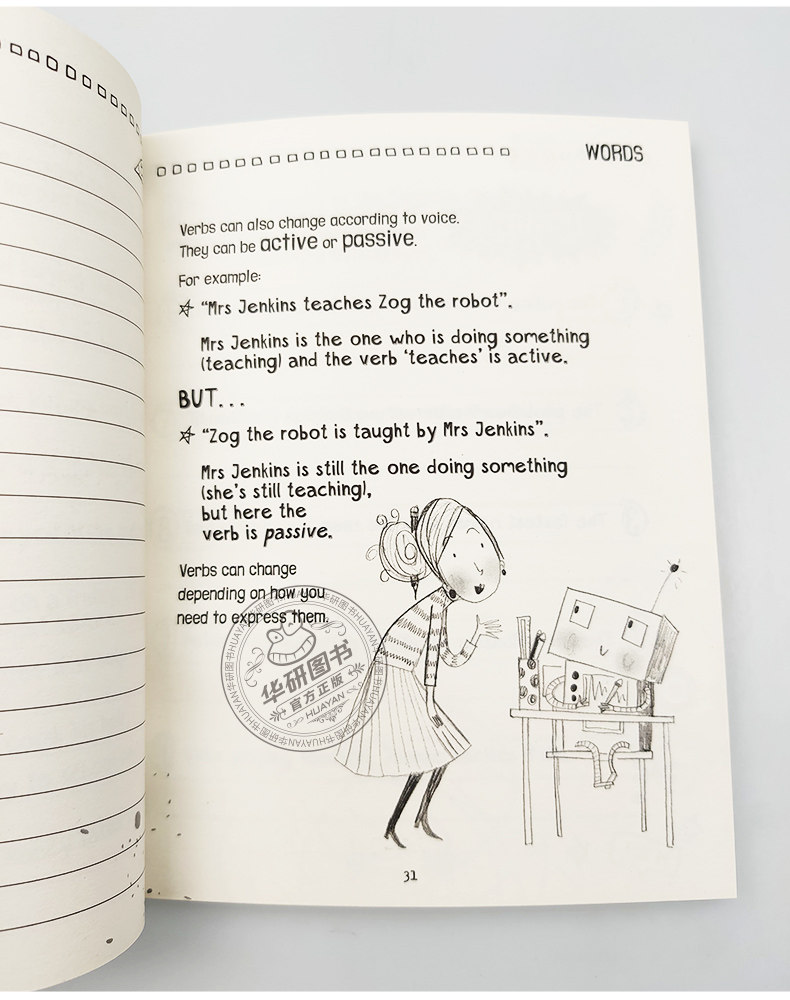 WORDS
Verbs can also change according to voice.
They can be active or passive.
For example:
☆ “Mrs Jenkins teaches Zog the robot”.
Mrs Jenkins is the one who is doing something
(teaching) and the verb ‘teaches’ is active.
BUT...
☆ “Zog the robot is taught by Mrs Jenkins”.
Mrs Jenkins is still the one doing something
(she’s still teaching),
but here the
verb is passive.
Verbs can change
depending on how you
need to express them.
华研图书
官方正版
HUAYAN
华研图书HUAYAN华研图书HUAYAN华研图书HUAYAN华研图书HUAYAN
31